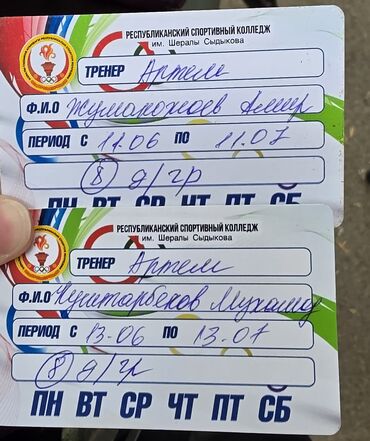 РЕСПУБЛИКАНСКИЙ СПОРТИВНЫЙ КОЛЛЕДЖ
им. Шералы Сыдыкова
ТРЕНЕР Артем
Ф.И.О Амир
ПЕРИОД С 11.06 ПО 11.07
8 д/гр
ПН ВТ СР ЧТ ПТ СБ
РЕСПУБЛИКАНСКИЙ СПОРТИВНЫЙ КОЛЛЕДЖ
им. Шералы Сыдыкова
ТРЕНЕР Артем
Ф.И.О
ПЕРИОД С 13-06 ПО 13.07
8 д/гр
ПН ВТ СР ЧТ ПТ СБ